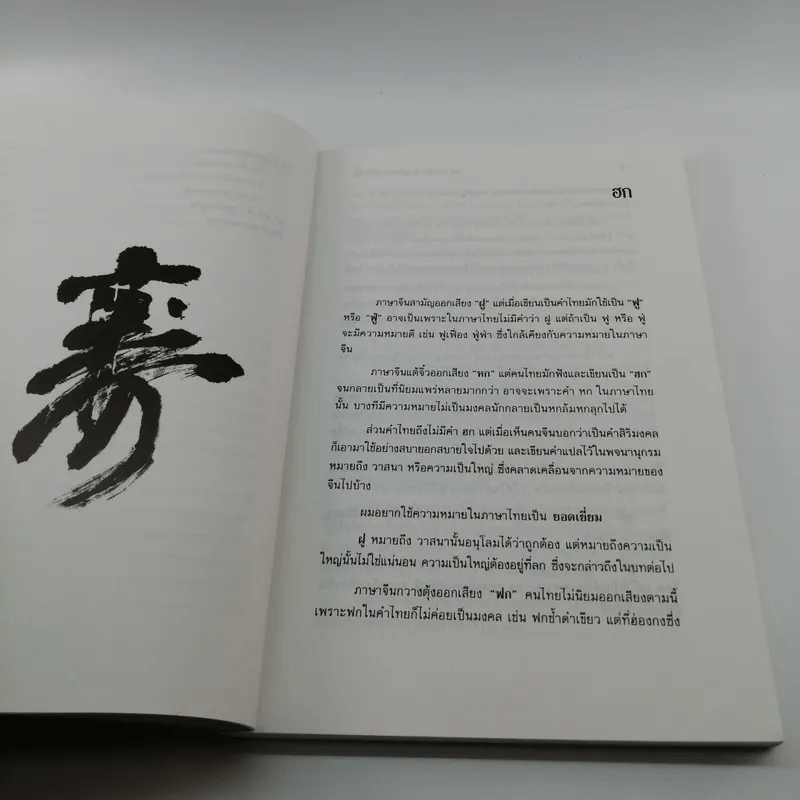 壽
ฮก
ภาษาจีนสามัญออกเสียง "ฝู" แต่เมื่อเขียนเป็นคำไทยมักใช้เป็น "ฟู"
หรือ "ฟู่" อาจเป็นเพราะในภาษาไทยไม่มีคำว่า ฝู แต่ถ้าเป็น ฟู หรือ ฟู่
จะมีความหมายดี เช่น ฟูเฟื่อง ฟู่ฟ่า ซึ่งใกล้เคียงกับความหมายในภาษา
จีน
ภาษาจีนแต้จิ๋วออกเสียง "หก" แต่คนไทยมักฟังและเขียนเป็น "ฮก"
จนกลายเป็นที่นิยมแพร่หลายมากกว่า อาจจะเพราะคำ หก ในภาษาไทย
นั้น บางทีมีความหมายไม่เป็นมงคลนักกลายเป็นหกล้มหกลุกไปได้
ส่วนคำไทยถึงไม่มีคำ ฮก แต่เมื่อเห็นคนจีนบอกว่าเป็นคำสิริมงคล
ก็เอามาใช้อย่างสบายอกสบายใจไปด้วย และเขียนคำแปลไว้ในพจนานุกรม
หมายถึง วาสนา หรือความเป็นใหญ่ ซึ่งคลาดเคลื่อนจากความหมายของ
จีนไปบ้าง
ผมอยากใช้ความหมายในภาษาไทยเป็น ยอดเยี่ยม
ฝู หมายถึง วาสนานั้นอนุโลมได้ว่าถูกต้อง แต่หมายถึงความเป็น
ใหญ่นั้นไม่ใช่แน่นอน ความเป็นใหญ่ต้องอยู่ที่ลก ซึ่งจะกล่าวถึงในบทต่อไป
ภาษาจีนกวางตุ้งออกเสียง "ฟก" คนไทยไม่นิยมออกเสียงตามนี้
เพราะฟกในคำไทยก็ไม่ค่อยเป็นมงคล เช่น ฟกช้ำดำเขียว แต่ที่ฮ่องกงซึ่ง